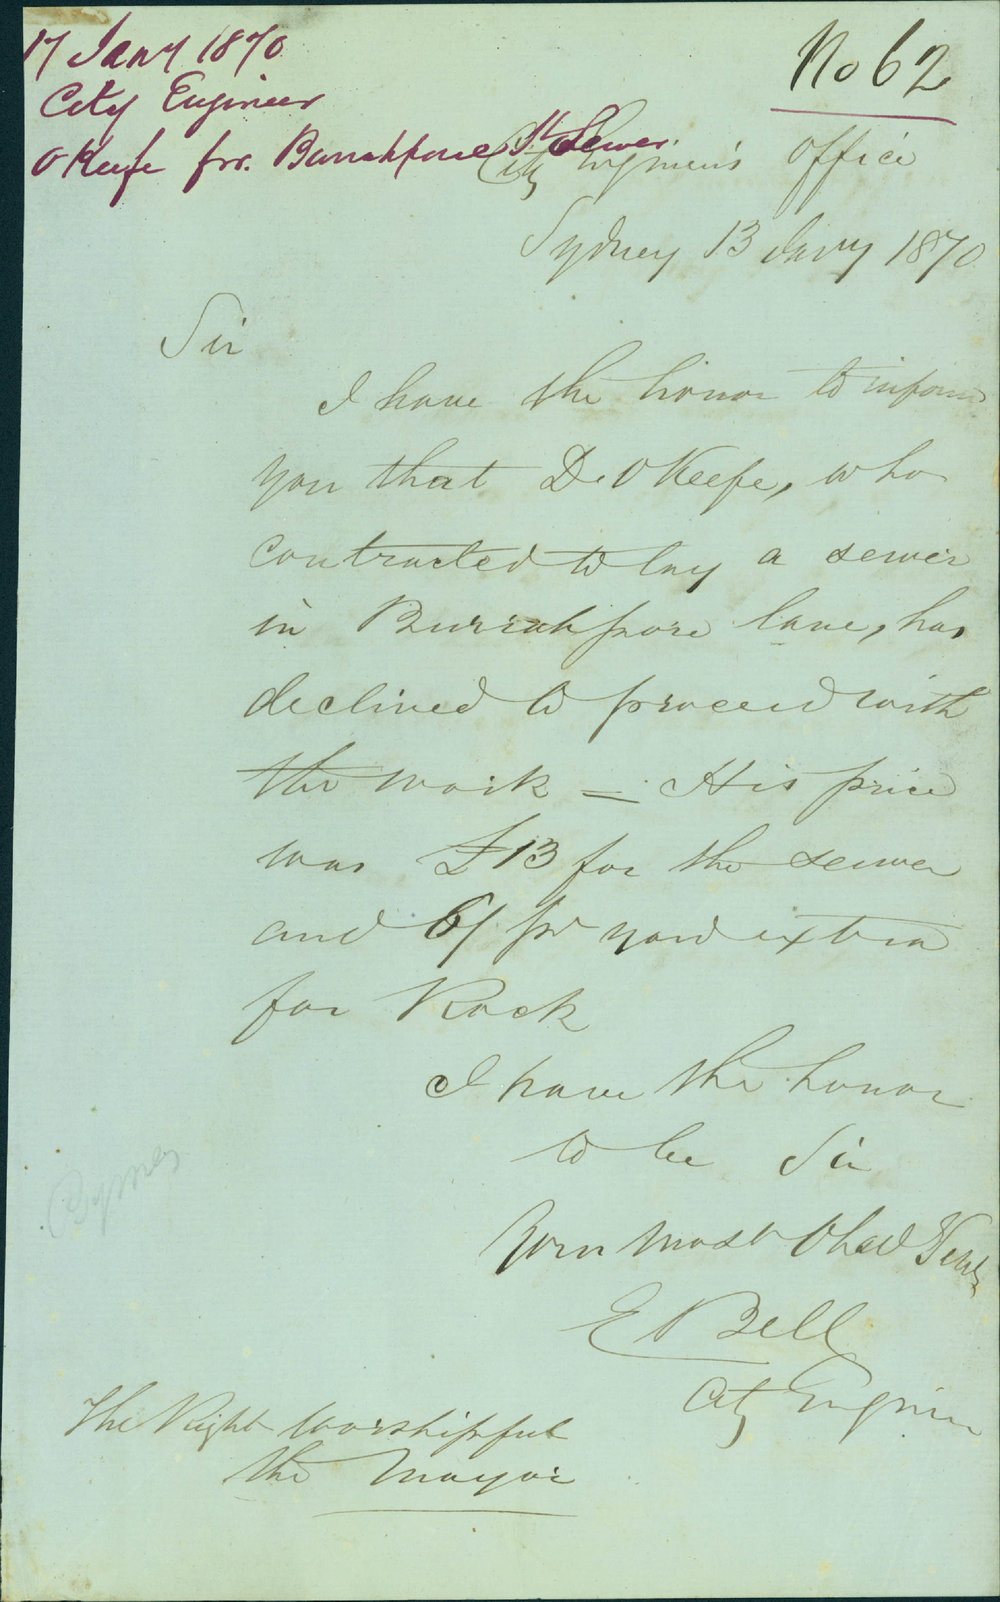 17 Jany 1870
City Engineer
O Keefe for. Barrakpore St Sewer.
No 62
City Engineer's Office
Sydney 13 Jany 1870
Sir
I have the honor to inform
you that D. O Keefe, who
contracted to lay a sewer
in Burrakpore lane, has
declined to proceed with
the work = His price
was £13 for the sewer
and 6/ pr yard extra
for Rock
I have the honor
to be Sir
Your most Obed Servt
E Bell
City Engineer
The Right Worshipful
the Mayor